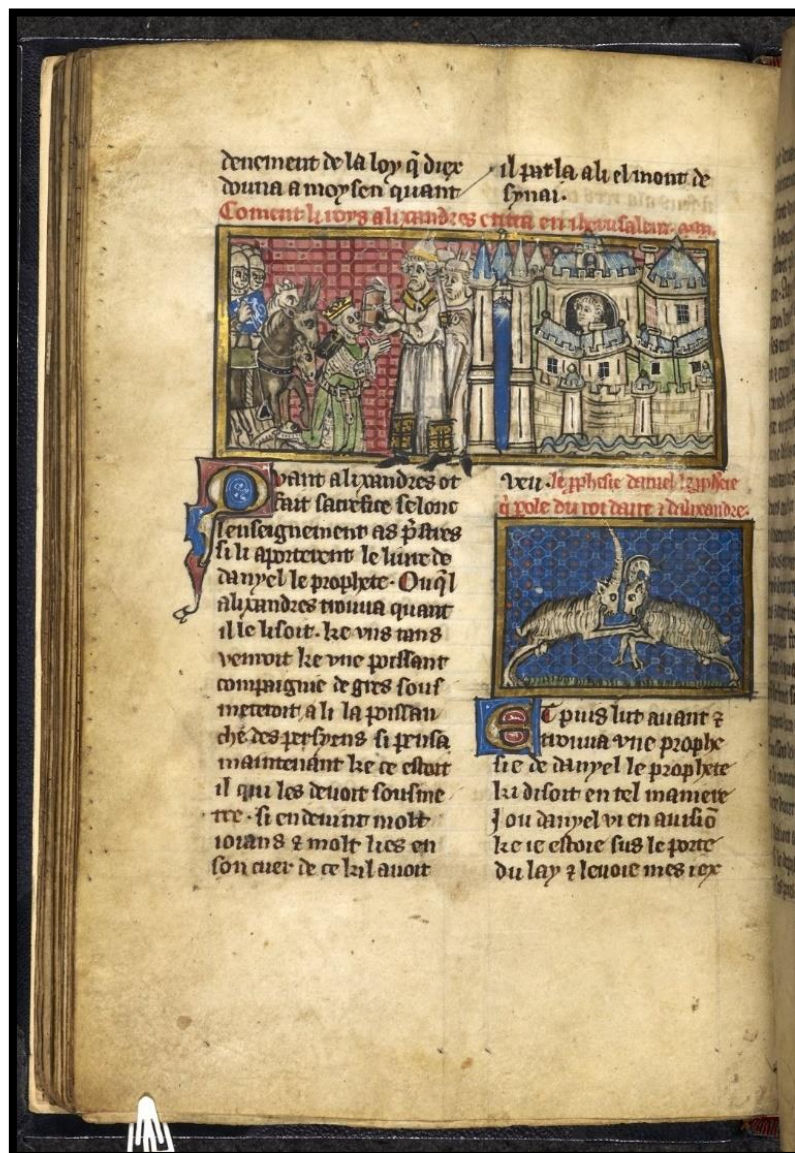 denement de la loy q̃ diex
douna a moysen quant
il parla a li el mont de
synai.
Coment li roys alixandres entra en iherusalem.
Quant alixandres ot
fait sacrefice selonc
lenseignement as p̃stres
si li aporterent le liure de
danyel le prophete. Ouq̃l
alixandres trouua quant
il le lisoit. ke uns tans
venroit ke vne poissant
compaignie de gres sous
meteroit a li la poissan
che des persyens si pensa
maintenant ke ce estoit
il qui les deuoit sousme
tre. si en deuint molt
ioians ⁊ molt lies en
son cuer de ce kil auoit
veu. le ꝓphesie daniel le ꝓphete
q̃ pole du roi daire ⁊ dalixandre.
Et puis lut auant ⁊
trouua vne prophe
sie de danyel le prophete
ki disoit en tel maniere
Jou danyel vi en auisiõ
ke ie estoie sus le porte
du lay ⁊ leuoie mes iex